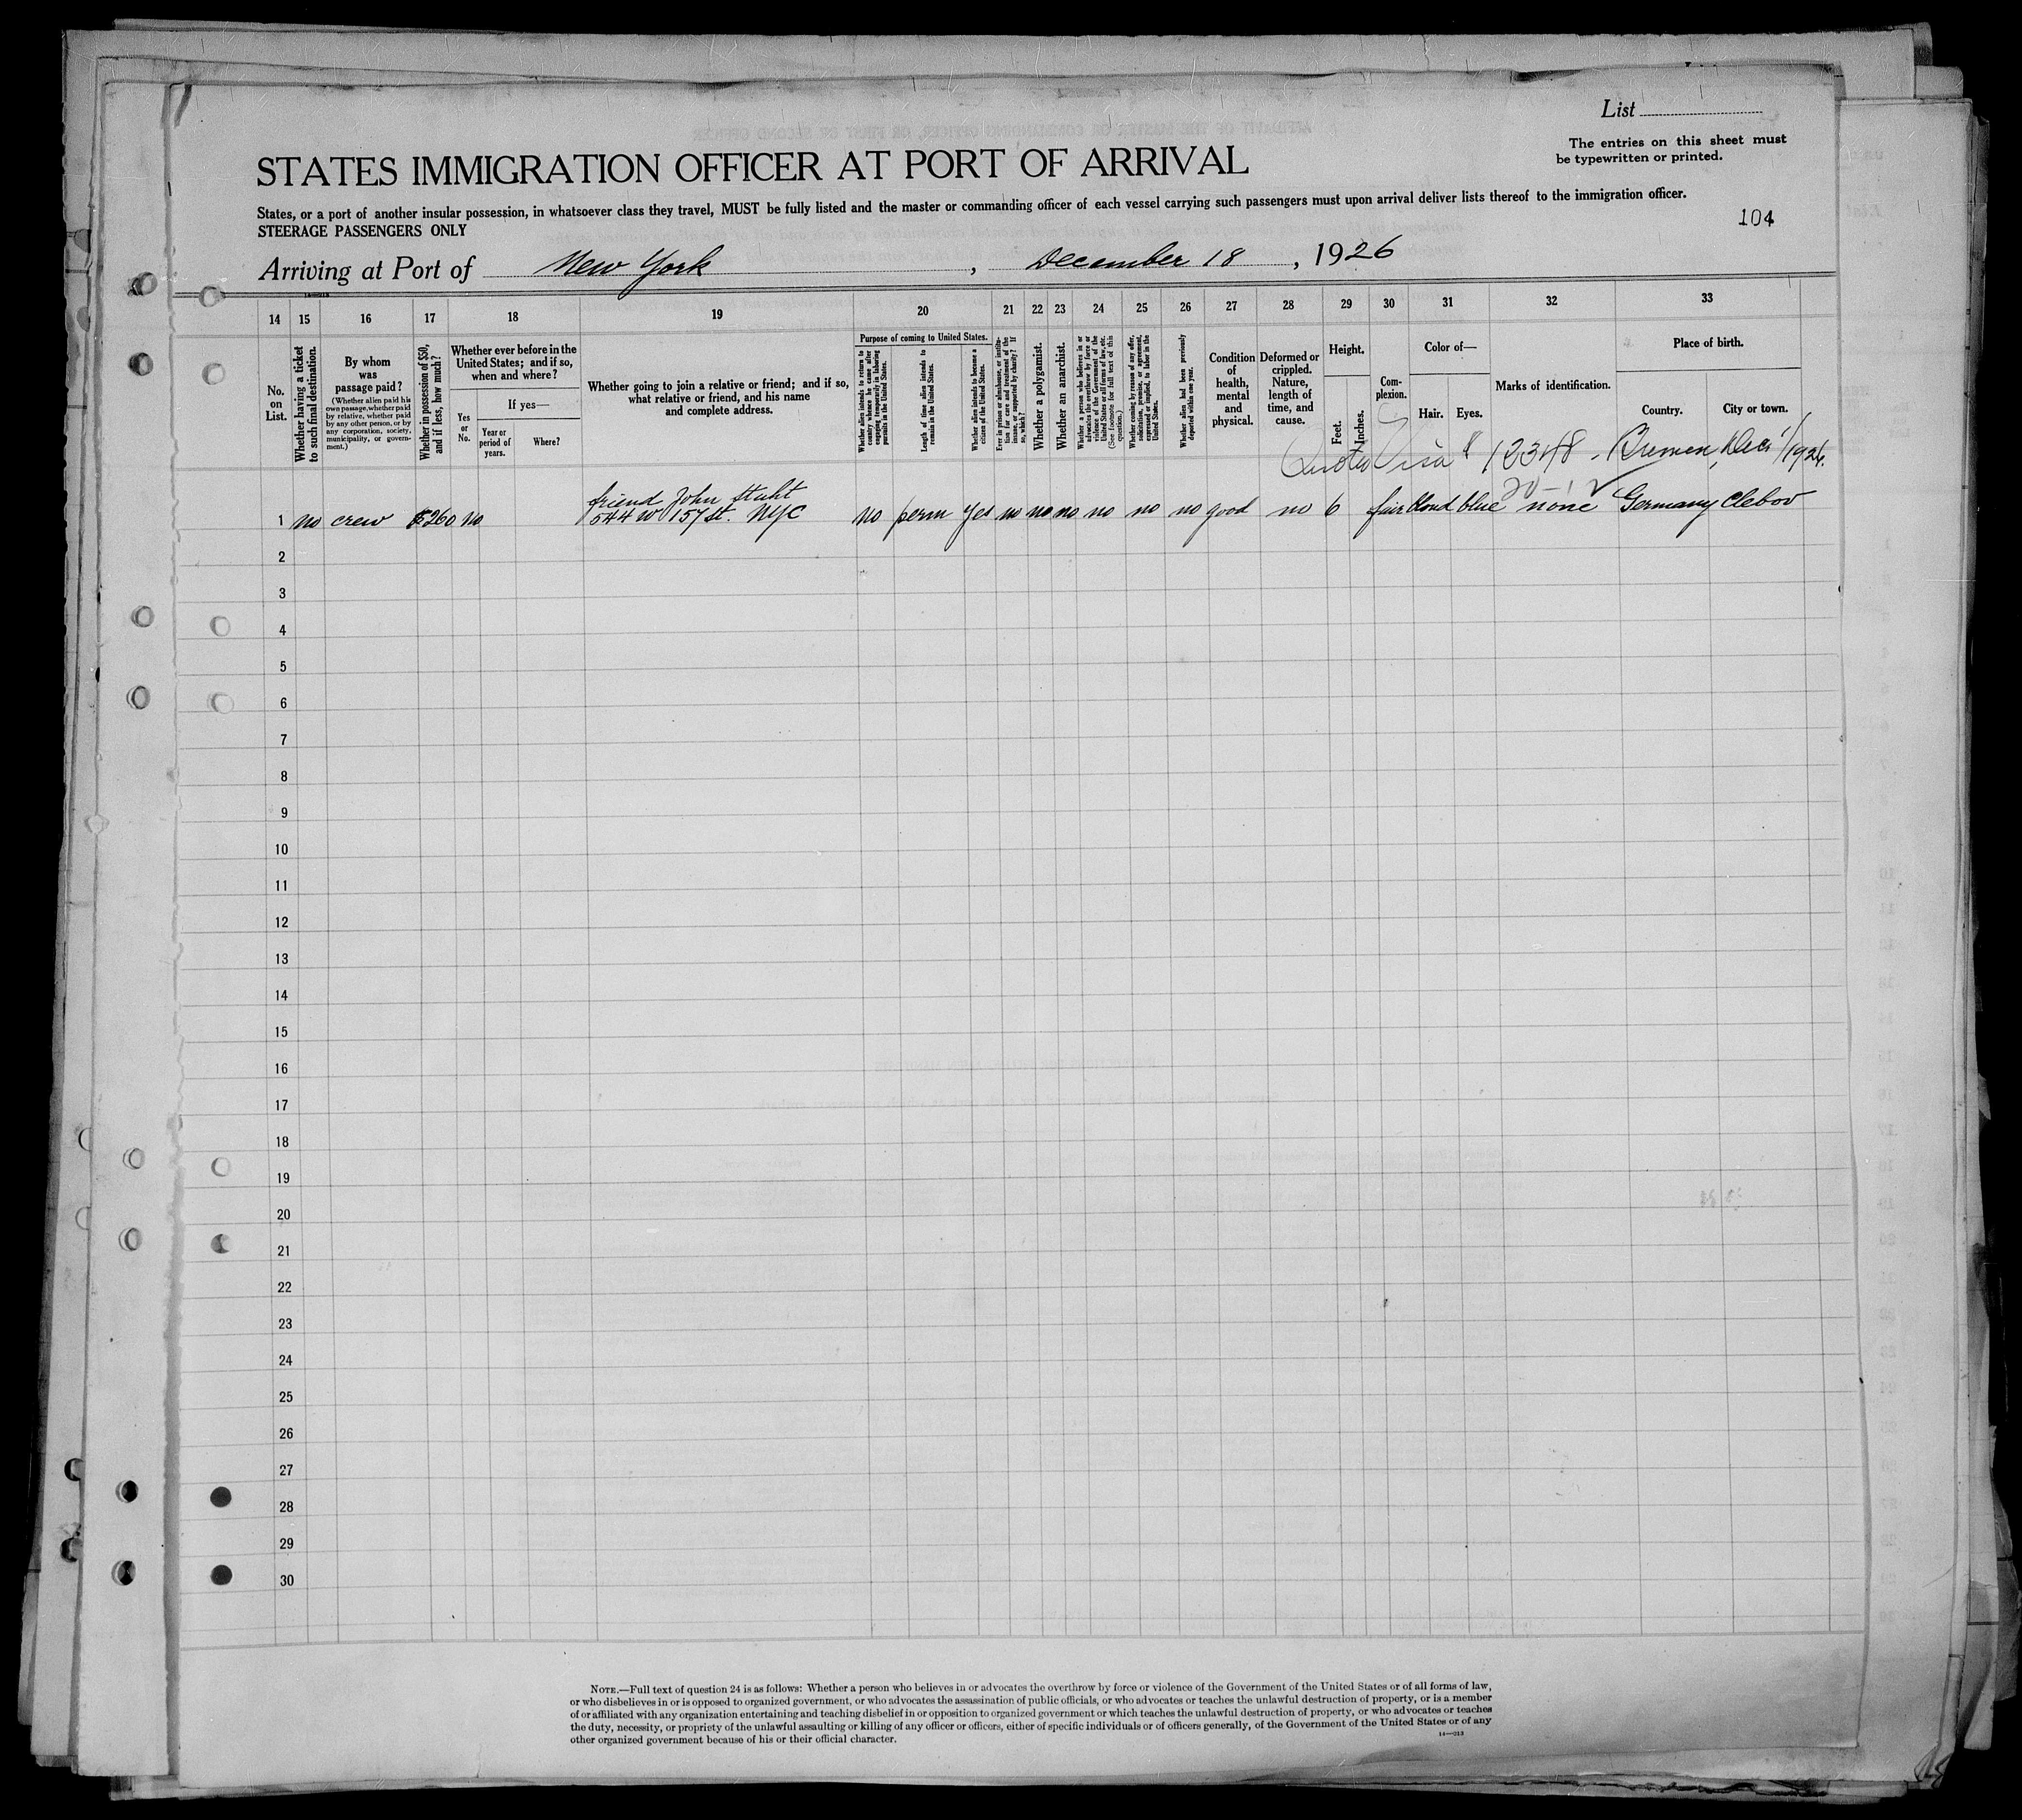 List
The entries on this sheet must
be typewritten or printed.
STATES IMMIGRATION OFFICER AT PORT OF ARRIVAL
States, or a port of another insular possession, in whatsoever class they travel, MUST be fully listed and the master or commanding officer of each vessel carrying such passengers must upon arrival deliver lists thereof to the immigration officer.
STEERAGE PASSENGERS ONLY
104
Arriving at Port of New York, December 18, 1926
14 15 16 17 18 19 20 21 22 23 24 25 26 27 28 29 30 31 32 33
No. on List.
Whether having a ticket to such final destination.
By whom was passage paid?
(Whether alien paid his own passage, whether paid by relative, whether paid by any other person, or by any corporation, society, municipality, or government.)
Whether in possession of $50, and if less, how much?
Whether ever before in the United States; and if so, when and where?
Yes or No.
If yes—
Year or period of years.
Where?
Whether going to join a relative or friend; and if so, what relative or friend, and his name and complete address.
Purpose of coming to United States.
Whether alien intends to return to country whence he came after engaging temporarily in laboring pursuits in the United States.
Length of time alien intends to remain in the United States.
Whether alien intends to become a citizen of the United States.
Ever in prison or almshouse, or institution for care and treatment of the insane, or supported by charity? If so, which?
Whether a polygamist.
Whether an anarchist.
Whether a person who believes in or advocates the overthrow by force or violence of the Government of the United States or all forms of law, etc. (See footnote for full text of this question.)
Whether coming by reason of any offer, solicitation, promise, or agreement, expressed or implied, to labor in the United States.
Whether alien had been previously deported within one year.
Condition of health, mental and physical.
Deformed or crippled. Nature, length of time, and cause.
Height.
Feet. Inches.
Complexion.
Color of—
Hair. Eyes.
Marks of identification.
Place of birth.
Country. City or town.
Quota Visa # 12348 - Bremen, Dec 1/1926.
1 no crew $260 no friend John Stuht 544 W 157 St. NYC no perm yes no no no no no no good no 6 fair blond blue none Germany Clebov
2
3
4
5
6
7
8
9
10
11
12
13
14
15
16
17
18
19
20
21
22
23
24
25
26
27
28
29
30
NOTE.—Full text of question 24 is as follows: Whether a person who believes in or advocates the overthrow by force or violence of the Government of the United States or of all forms of law,
or who disbelieves in or is opposed to organized government, or who advocates the assassination of public officials, or who advocates or teaches the unlawful destruction of property, or is a member
of or affiliated with any organization entertaining and teaching disbelief in or opposition to organized government or which teaches the unlawful destruction of property, or who advocates or teaches
the duty, necessity, or propriety of the unlawful assaulting or killing of any officer or officers, either of specific individuals or of officers generally, of the Government of the United States or of any
other organized government because of his or their official character.
14—313